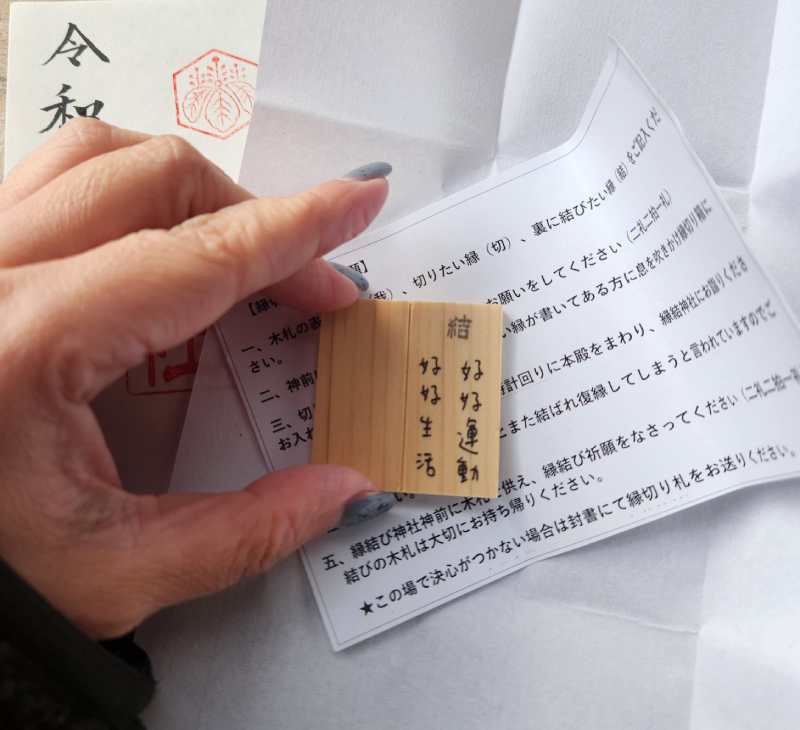 令和
結
好好運動
好好生活
、切りたい縁（切）、裏に結びたい縁（結）をご記入くだ
一、木札の表
さい。
お願いをしてください（二礼二拍一礼）
二、神前
い縁が書いてある方に息を吹きかけ縁切り館に
三、切
お入れ
時計回りに本殿をまわり、縁結神社にお詣りくださ
とまた結ばれ復縁してしまうと言われていますのでご
い。
五、縁結び神社神前に木札 供え、縁結び祈願をなさってください（二礼二拍一礼
結びの木札は大切にお持ち帰りください。
★この場で決心がつかない場合は封書にて縁切り札をお送りください。